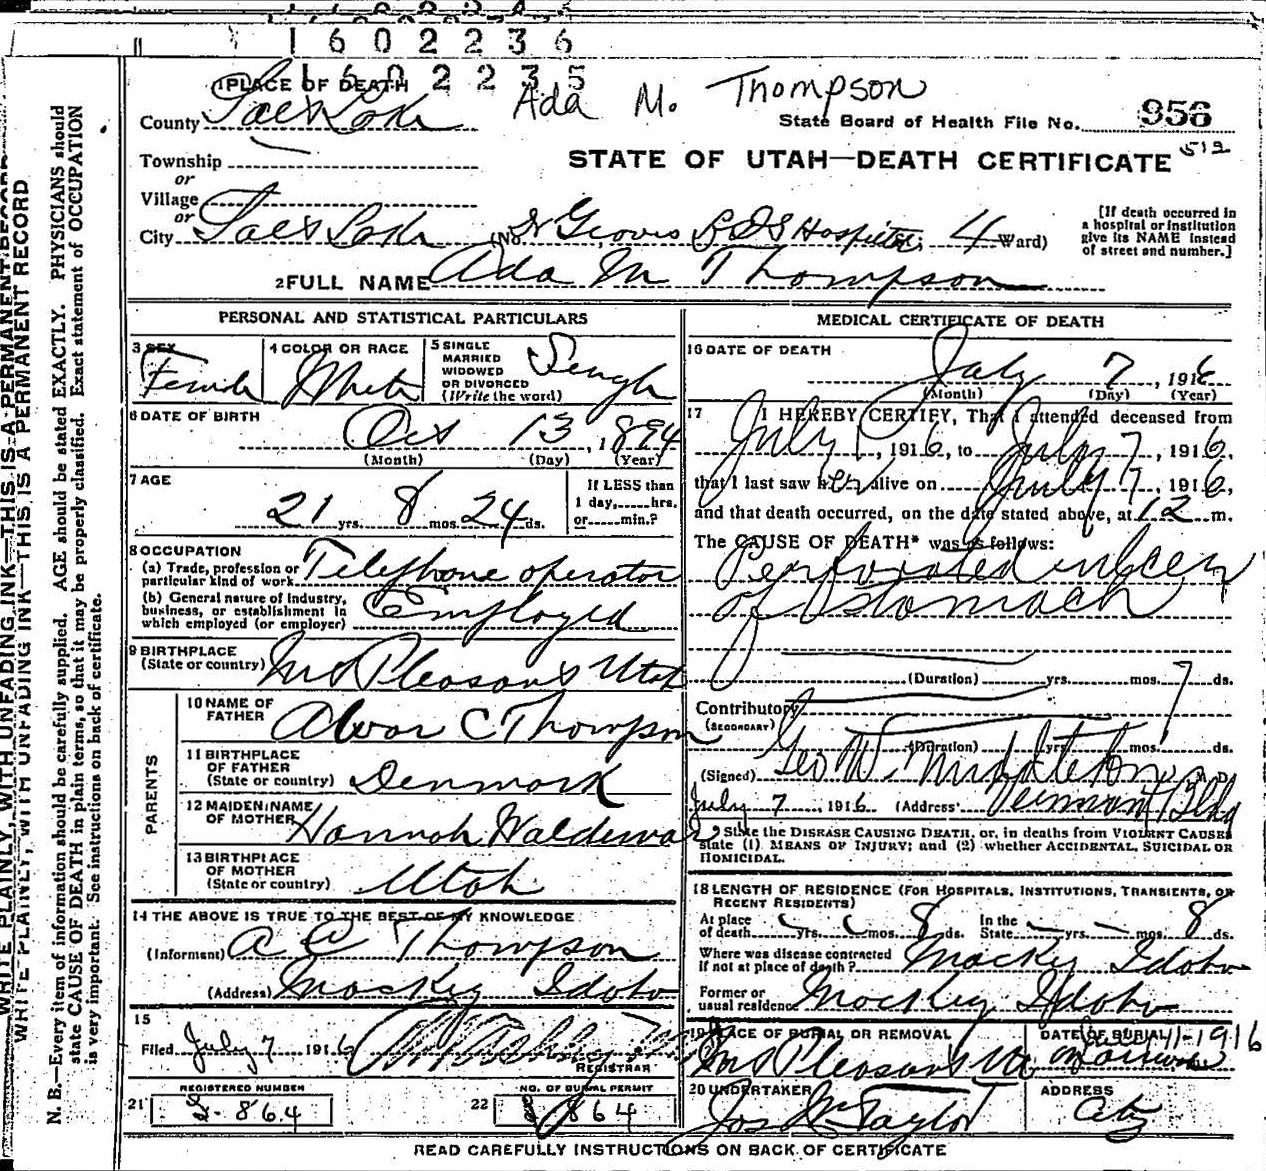 1602236
1602235
1 PLACE OF DEATH
Ada M. Thompson
County Salt Lake
State Board of Health File No. 956
512
STATE OF UTAH—DEATH CERTIFICATE
Township
or
Village
or
City Salt Lake (No. Dr Groves LDS Hospital, 4 Ward)
[If death occurred in
a hospital or institution
give its NAME instead
of street and number.]
2 FULL NAME Ada M Thompson
PERSONAL AND STATISTICAL PARTICULARS
3 SEX
Female
4 COLOR OR RACE
White
5 SINGLE
MARRIED
WIDOWED
OR DIVORCED
(Write the word)
Single
6 DATE OF BIRTH
Oct 13, 1894
(Month) (Day) (Year)
7 AGE
21 yrs. 8 mos. 24 ds.
If LESS than
1 day,......hrs.
or......min.?
8 OCCUPATION
(a) Trade, profession or
particular kind of work Telephone operator
(b) General nature of industry,
business, or establishment in
which employed (or employer) Employed
9 BIRTHPLACE
(State or country) Mt Pleasant Utah
PARENTS
10 NAME OF
FATHER Alvar C Thompson
11 BIRTHPLACE
OF FATHER
(State or country) Denmark
12 MAIDEN NAME
OF MOTHER Hannah
13 BIRTHPLACE
OF MOTHER
(State or country) Utah
14 THE ABOVE IS TRUE TO THE BEST OF MY KNOWLEDGE
(Informant) A C Thompson
(Address) Mackey Idaho
15
Filed July 7 1916
REGISTRAR
REGISTERED NUMBER
21 864
NO. OF BURIAL PERMIT
22 864
MEDICAL CERTIFICATE OF DEATH
16 DATE OF DEATH
July 7, 1916
(Month) (Day) (Year)
17 I HEREBY CERTIFY, That I attended deceased from
July 1, 1916, to July 7, 1916,
that I last saw her alive on July 7, 1916,
and that death occurred, on the date stated above, at 12 m.
The CAUSE OF DEATH* was as follows:
Perforated ulcer
of Stomach
(Duration) yrs. mos. 7 ds.
Contributory
(SECONDARY)
(Duration) yrs. mos. ds.
(Signed) Geo W. Middleton M.D.
July 7 1916 (Address) Bldg
* State the DISEASE CAUSING DEATH, or, in deaths from VIOLENT CAUSES
state (1) MEANS OF INJURY; and (2) whether ACCIDENTAL, SUICIDAL OR
HOMICIDAL.
18 LENGTH OF RESIDENCE (FOR HOSPITALS, INSTITUTIONS, TRANSIENTS, OR
RECENT RESIDENTS)
At place
of death yrs. mos. 8 ds.
In the
State yrs. mos. 8 ds.
Where was disease contracted
if not at place of death? Mackey Idaho
Former or
usual residence Mackey Idaho
19 PLACE OF BURIAL OR REMOVAL
Mt Pleasant Ut
DATE OF BURIAL
1916
20 UNDERTAKER
Jos Wm Taylor
ADDRESS
City
READ CAREFULLY INSTRUCTIONS ON BACK OF CERTIFICATE
WRITE PLAINLY, WITH UNFADING INK—THIS IS A PERMANENT RECORD
WRITE PLAINLY, WITH UNFADING INK—THIS IS A PERMANENT RECORD
N. B.—Every item of information should be carefully supplied. AGE should be stated EXACTLY. PHYSICIANS should
state CAUSE OF DEATH in plain terms, so that it may be properly classified. Exact statement of OCCUPATION
is very important. See instructions on back of certificate.